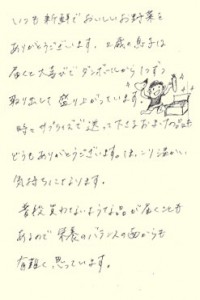 いつも新鮮でおいしいお野菜を
ありがとうございます。 歳の息子は
届くと大喜びで ダンボールから1つずつ
取り出して 盛り上がっています。
時々サプライズで送って下さるおまけの品も
どうもありがとうございます。ほっこり温かい
気持ちになります。
普段買わないような品が届くことも
あるので 栄養のバランスの面からも
有難く思っています。